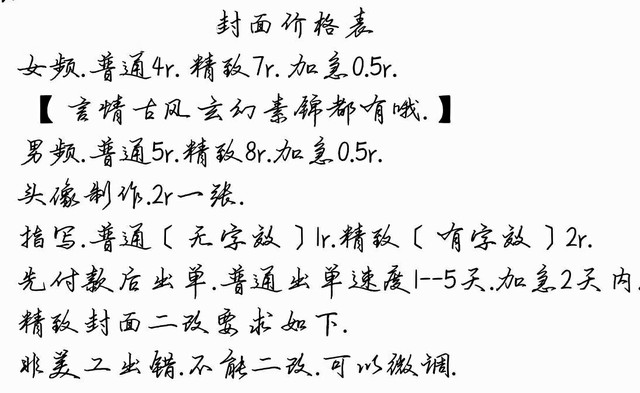 封面价格表
女频.普通4r.精致7r.加急0.5r.
【言情古风玄幻素锦都有哦.】
男频.普通5r.精致8r.加急0.5r.
头像制作.2r一张.
指写.普通〔无字放〕1r.精致〔有字放〕2r.
先付款后出单.普通出单速度1--5天.加急2天内.
精致封面二改要求如下.
非美工出错.不能二改.可以微调.